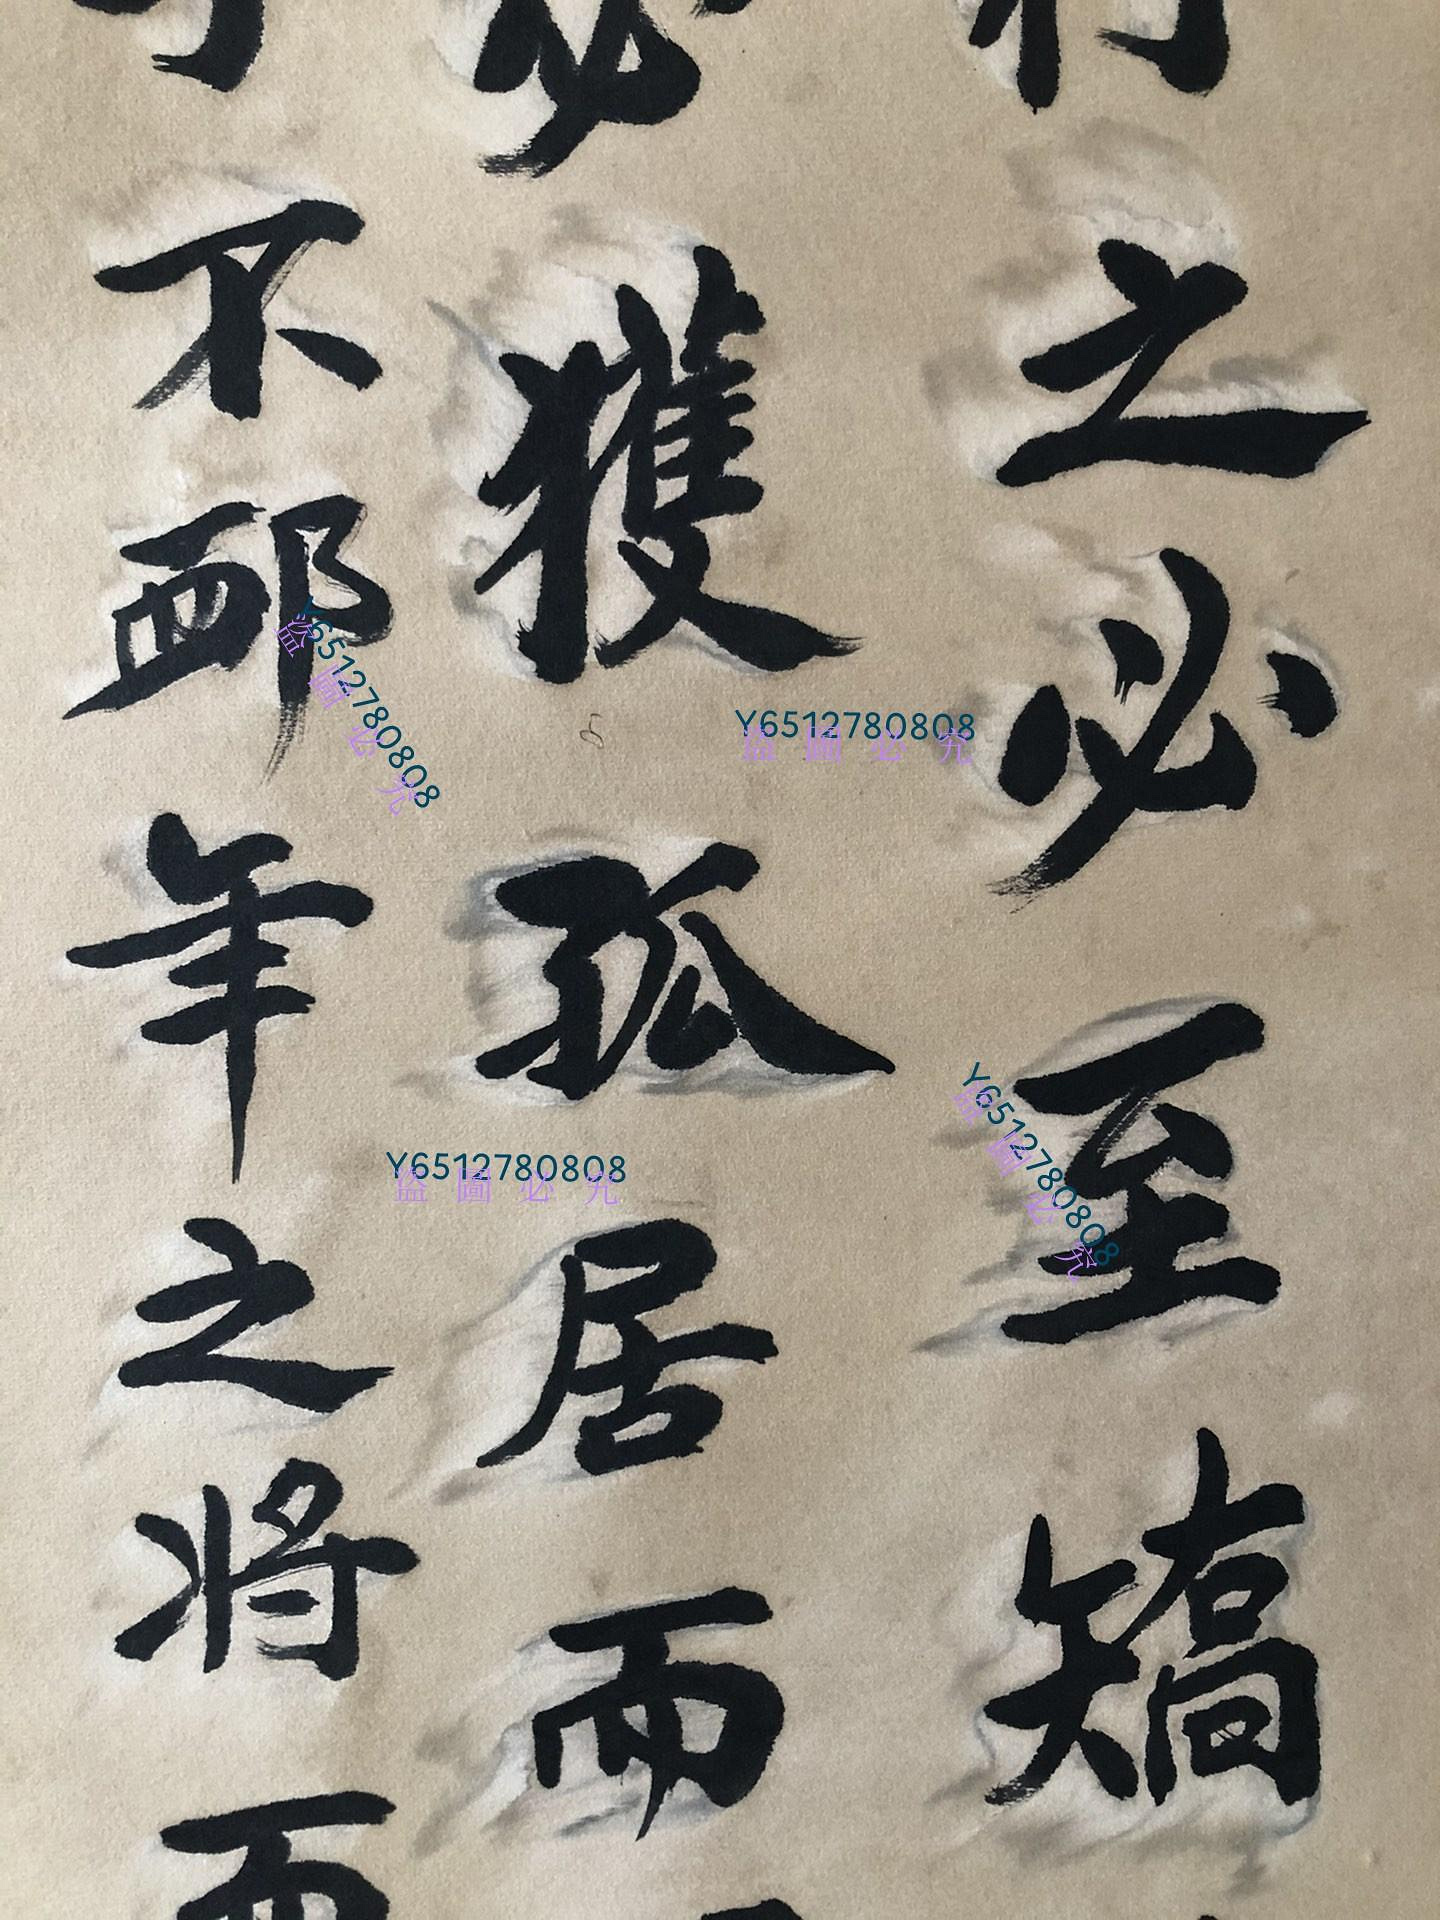 之必至矯
必獲孤居而
不邮年之将而
Y6512780808
盜圖必究
Y6512780808
盜圖必究
Y6512780808
盜圖必究
Y6512780808
盜圖必究